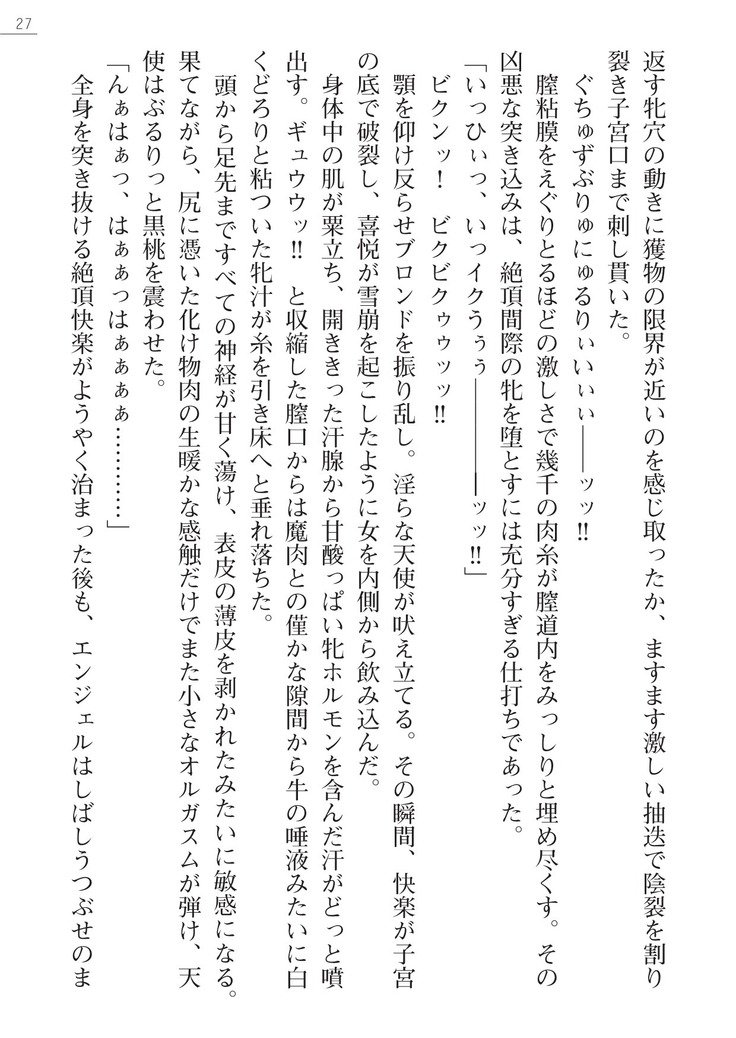 27
返す牝穴の動きに獲物の限界が近いのを感じ取ったか、ますます激しい抽迭で陰裂を割り
裂き子宮口まで刺し貫いた。
ぐちゅずぶりゅにゅるりぃいぃぃ――ッッ!!
膣粘膜をえぐりとるほどの激しさで幾千の肉糸が膣道内をみっしりと埋め尽くす。その
凶悪な突き込みは、絶頂間際の牝を堕とすには充分すぎる仕打ちであった。
「いっひぃっ、いっイクうぅぅ―――――ッッ!!」
ビクンッ!　ビクビクゥゥッッ!!
顎を仰け反らせブロンドを振り乱し。淫らな天使が吠え立てる。その瞬間、快楽が子宮
の底で破裂し、喜悦が雪崩を起こしたように女を内側から飲み込んだ。
身体中の肌が粟立ち、開ききった汗腺から甘酸っぱい牝ホルモンを含んだ汗がどっと噴
出す。ギュウウッ!!　と収縮した膣口からは魔肉との僅かな隙間から牛の唾液みたいに白
くどろりと粘ついた牝汁が糸を引き床へと垂れ落ちた。
頭から足先まですべての神経が甘く蕩け、表皮の薄皮を剥かれたみたいに敏感になる。
果てながら、尻に憑いた化け物肉の生暖かな感触だけでまた小さなオルガスムが弾け、天
使はぶるりっと黒桃を震わせた。
「んぁはぁっ、はぁぁっはぁぁぁぁ…………」
全身を突き抜ける絶頂快楽がようやく治まった後も、エンジェルはしばしうつぶせのま